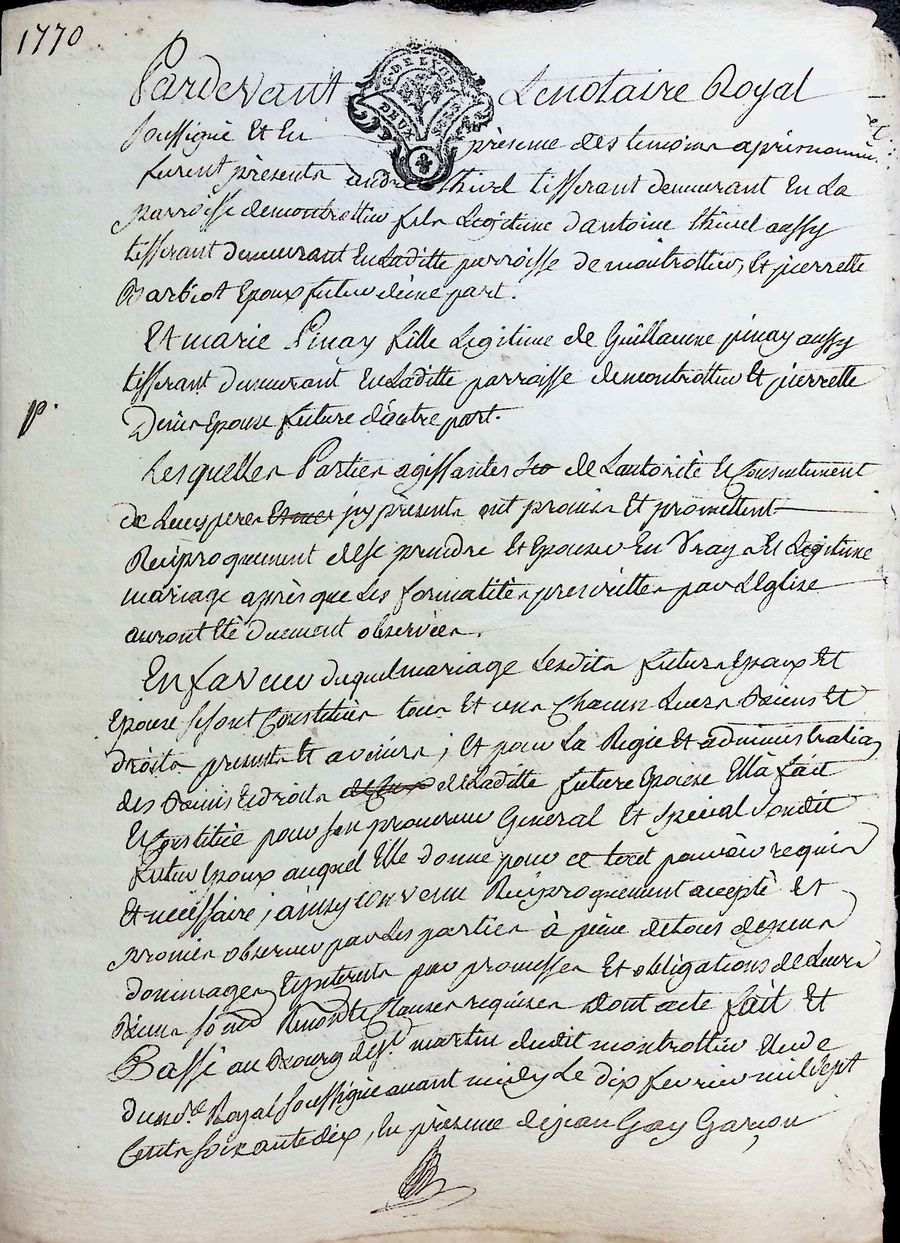 1770
Pardevant Le notaire Royal
G. DE LYON
DEUX SOLS
soussigné Et En présence des temoins aprés nommés
furent présents andré thivel tisserant demeurant En La
parroisse de montrottier fils Legitime d'antoine thivel aussy
tisserant demeurant En Laditte parroisse de montrottier, Et pierrette
Epoux futur d'une part.
Et marie Pinay fille Legitime de Guillaume pinay aussy
tisserant demeurant En Laditte parroisse demontrottier Et pierrette
Epouse future d'autre part.
p.
Lesquelles Parties agissantes de Lautorité Et Consentement
de Leurs peres Et mer jcy présents ont promis Et promettent
Réciproquement de se prendre Et Epouser En Vray Et Legitime
mariage après que Les formalités prescrittes par L'Eglise
auront été duement observées.
En faveur duquel mariage Lesdits futurs Epoux Et
Epouse se sont Constitués tous Et uns Chacuns Leurs Biens Et
droits presents Et avenirs ; Et pour La Regie Et administration
des Biens Et droits de Laditte future Epouse Elle a fait
Et Constitué pour son procureur General Et Special Sondit
futur Epoux auquel Elle donne pour ce tout pouvoir requis
Et nécéssaire ; ainsy convenu Réciproquement accepté Et
promis observer par Les parties à peine de tous depens
dommages Et interests par promesses Et obligations de Leurs
Biens Clauses requises dont acte fait Et
Passé au Bourg de St. martin dudit montrottier Etude
du nore. Royal soussigné avant midy Le dix fevrier mil sept
Cents soixante dix, En présence de jean Gay Garçon